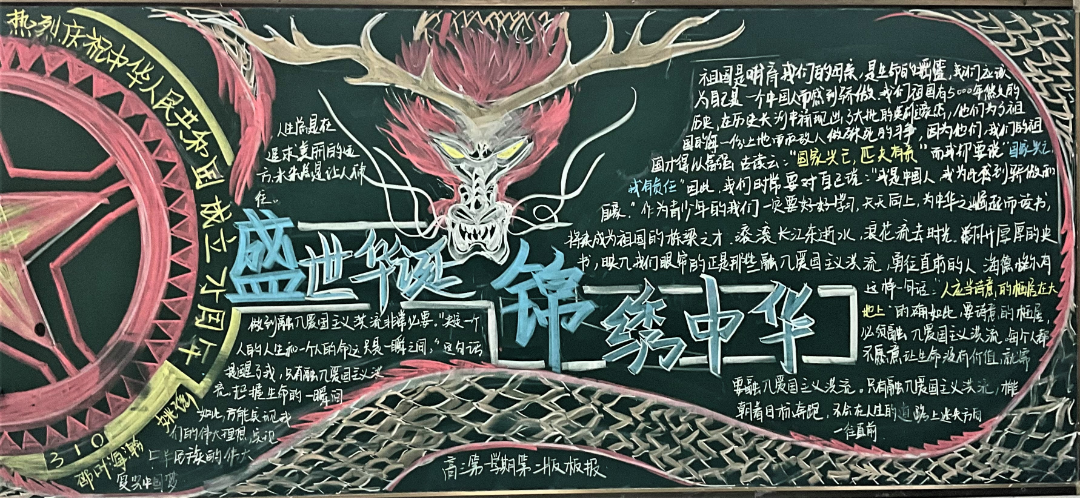 热烈庆祝中华人民共和国成立75周年
人生总是在
追求美丽的远
方,未来总是让人神
往。
盛世华诞
锦绣中华
祖国是哺育我们的母亲,是生命的摇篮,我们应该
为自己是一个中国人而感到骄傲。我们祖国有5000年悠久的
历史,在历史长河中涌现出了大批的英雄 他们为了祖
国的每一份土地而而敌人做 的斗争,因为他们,我们的祖
国才得以富强 古语云:“国家兴亡,匹夫有责”而我却要说“国家兴亡,
我有责任”因此,我们时常要对自己说:“我是中国人,我为此感到骄傲和
自豪。”作为青少年的我们一定要好好学习,天天向上,为中华之崛起而读书,
将来成为祖国的栋梁之才,滚滚长江东逝水,浪花流去时光。翻开厚厚的史
书,映入我们眼帘的正是那些融入爱国主义洪流,勇往直前的人 海德格尔有
这样一句话:“人应当诗意的栖居在大
地上”的确如此,要诗意的栖居,
必须融入爱国主义洪流。每个人都
不愿意让生命没有价值,就需
要融入爱国主义洪流。只有融入爱国主义洪流,才能
朝着目标奔跑,不会在人生的道路上迷失方向
一往直前
做到融入爱国主义洪流非常必要。“决定一个
人的人生和一个人的命运只是一瞬之间。”这句话
提醒了我,只有融入爱国主义洪
流 把握生命的一瞬间
如此,方能实现我
们的伟大理想,实现
民族的伟大
复兴中国梦
310
高三第一学期第二版板报